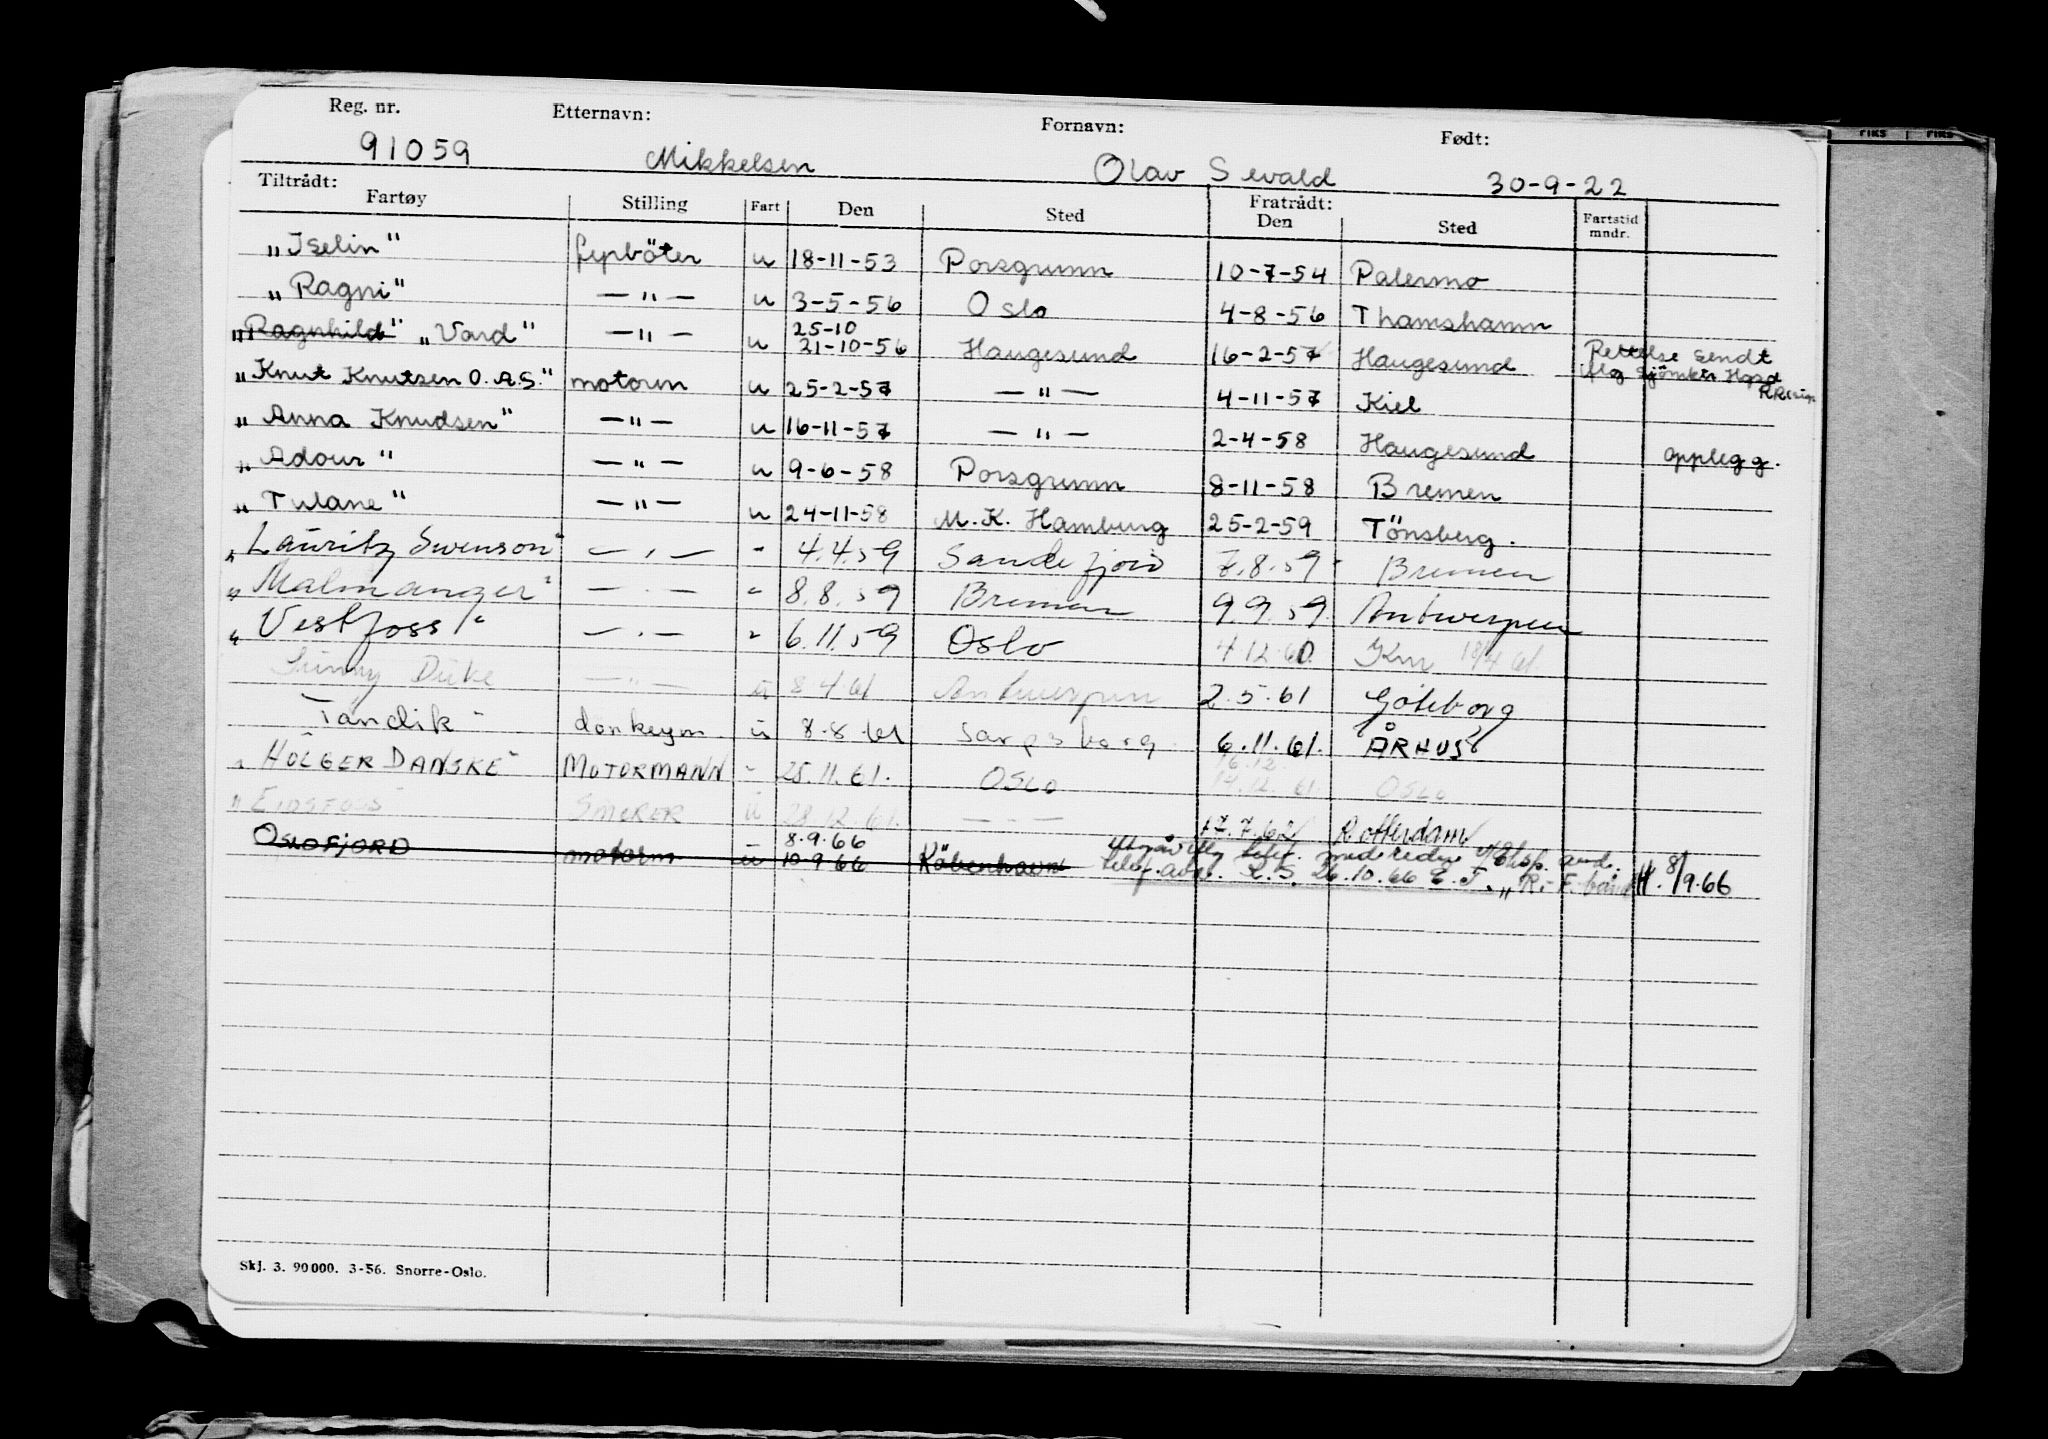 FIKS FIKS
Reg. nr. Etternavn: Fornavn: Født:
91059 Mikkelsen Olav Sevald 30-9-22
Tiltrådt: Fratrådt:
Fartøy Stilling Fart Den Sted Den Sted Fartstid mndr.
"Iselin" fyrböter u 18-11-53 Porsgrunn 10-7-54 Palermo
"Ragni" — " — u 3-5-56 Oslo 4-8-56 Thamshamn
25-10
"Ragnhild" "Vard" — " — u 21-10-56 Haugesund 16-2-57 Haugesund Rettelse sendt
"Knut Knutsen O.A.S." motorm u 25-2-57 — " — 4-11-57 Kiel
"Anna Knudsen" — " — u 16-11-57 — " — 2-4-58 Haugesund opplegg.
"Adour" — " — u 9-6-58 Porsgrunn 8-11-58 Bremen
"Tulane" — " — u 24-11-58 M.K. Hamburg 25-2-59 Tönsberg.
"Lauritz Swenson" — " — " 4.4.59 Sandefjord 7.8.59 Bremen
"Malmanger" — " — " 8.8.59 Bremen 9.9.59 Antwerpen
"Vestfoss" — " — " 6.11.59 Oslo 4.12.60 Km 18/4 61.
Sunny Duke — " — u 8.4.61 Antwerpen 2.5.61 Göteborg
Tandik" donkeym. u 8.8.61 Sarpsborg 6.11.61. ÅRHUS
16.12.
"HOLGER DANSKE" MOTORMANN " 25.11.61. OSLO 14.12.61. OSLO
"EIDSFOSS" SMØRER u 28.12.61. — " — 17.7.62 Rotterdam
8.9.66
OSLOFJORD motorm u 10.9.66 Köbenhavn 26.10.66 8/9.66
Skj. 3. 90000. 3-56. Snorre-Oslo.